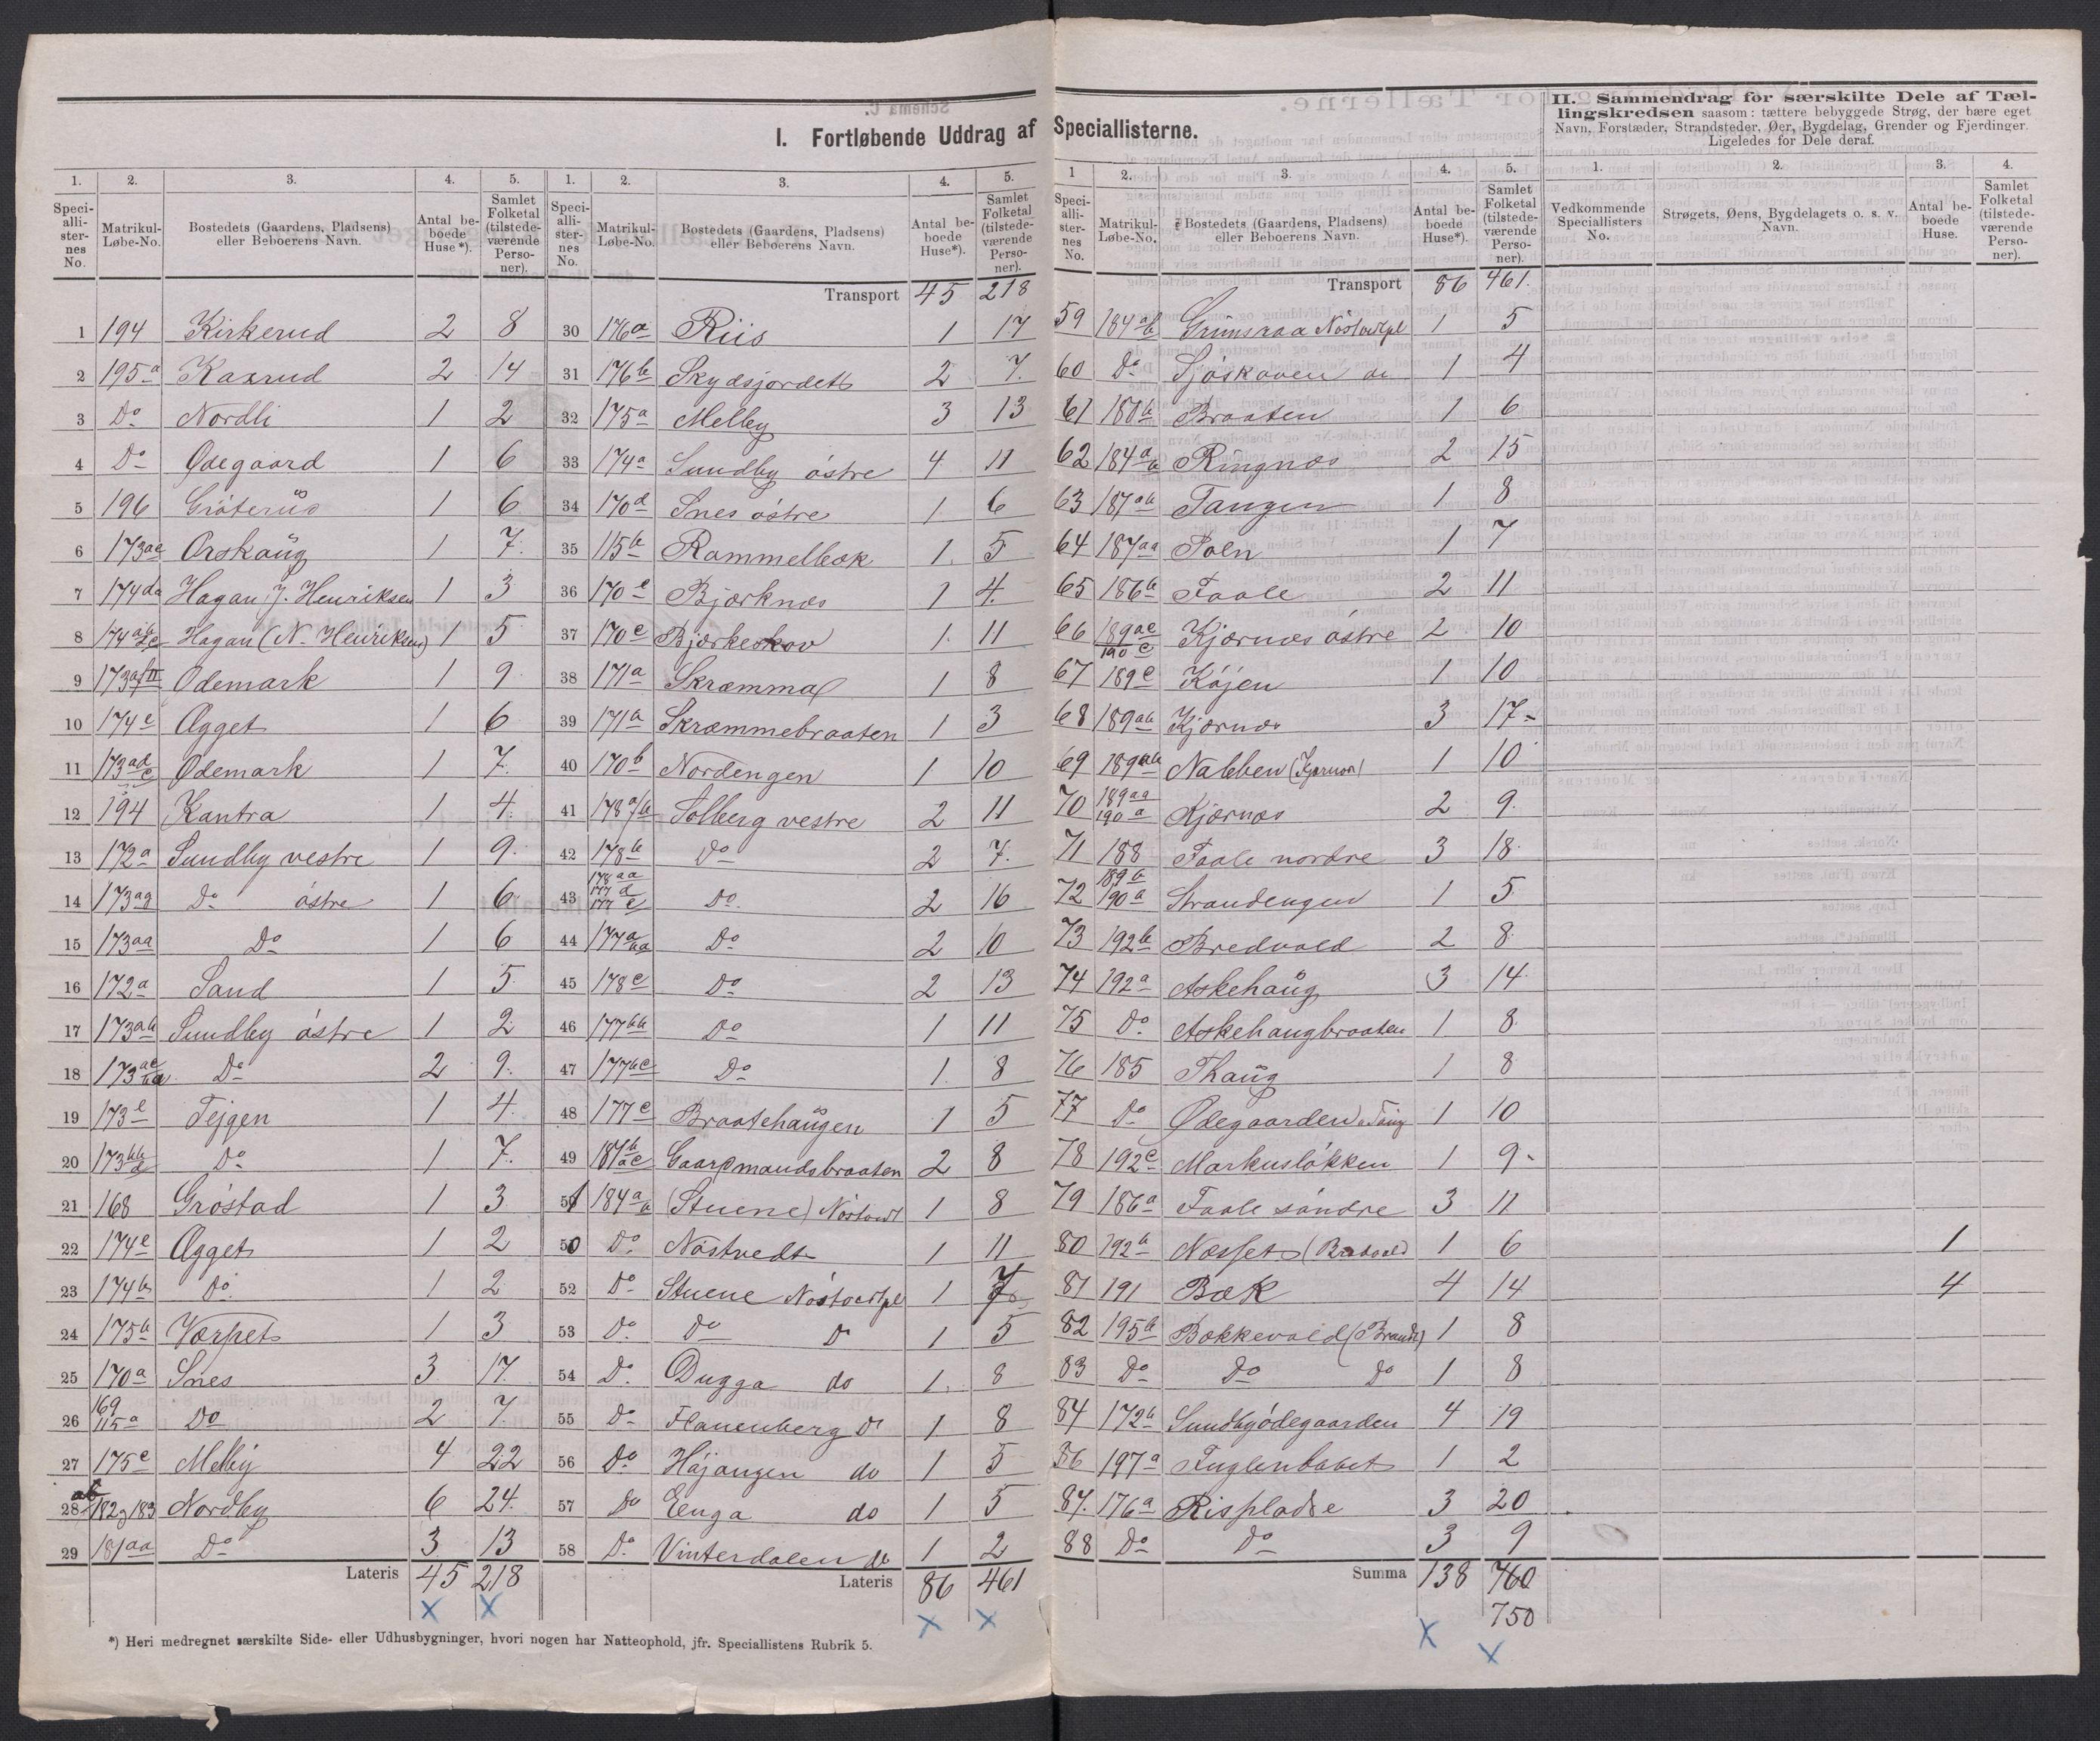 I. Fortløbende Uddrag af Speciallisterne.
II. Sammendrag for særskilte Dele af Tæl-
lingskredsen saasom: tættere bebyggede Strøg, der bære eget
Navn, Forstæder, Strandsteder, Øer, Bygdelag, Grender og Fjerdinger.
Ligeledes for Dele deraf.
1. 2. 3. 4. 5.
Speci-alli-ster-nes No. Matrikul-Løbe-No. Bostedets (Gaardens, Pladsens) eller Beboerens Navn. Antal be-boede Huse*). Samlet Folketal (tilstede-værende Perso-ner).
1 194 Kirkerud 2 8
2 195a Kaxrud 2 14
3 Do Nordli 1 2
4 Do Ødegaard 1 6
5 196 Gróterud 1 6
6 173ae Orskaug 1 7.
7 174da Hagan J. Henriksen 1 3
8 174 Hagan (N. Henriksen) 1 5
9 173afII Odemark 1 9
10 174c Ægget 1 6
11 173ad Ødemark 1 7.
12 194 Kantra 1 4.
13 172a Sundby vestre 1 9.
14 173ag Do óstre 1 6
15 173aa Do 1 6
16 172a Sand 1 5
17 173ab Sundby óstre 1 2
18 173ac Do 2 9.
19 173e Tejgen 1 4.
20 173bb Do 1 7.
21 168 Gróstad 1 3
22 174e Ægget 1 2
23 174b Do. 1 2
24 175b Værpet 1 3
25 170a Snes 3 17.
26 169 115a Do 2 7
27 175c Melby 4 22
28 ab 182, 183 Nordby 6 24.
29 181aa Do 3 13
Lateris 45 218
1. 2. 3. 4. 5.
Speci-alli-ster-nes No. Matrikul-Løbe-No. Bostedets (Gaardens, Pladsens) eller Beboerens Navn. Antal be-boede Huse*). Samlet Folketal (tilstede-værende Perso-ner).
Transport 45 218
30 176a Riis 1 17
31 176b Skydsjordet 2 7.
32 175a Melby 3 13
33 174a Sundby óstre 4 11
34 170d Snes óstre 1 6
35 115b Rammelbæk 1. 5
36 170e Bjørknæs 1 4.
37 170c Bjørkeskov 1. 11
38 171a Skramma 1 8
39 171b Skræmmebraaten 1 3
40 170b Nordengen 1 10
41 178a/b Solberg vestre 2 11
42 178b Do 2 7.
43 178aa 177d 177c Do. 2 16
44 177a Do 2 10
45 178c Do 2 13
46 177bb Do 1 11
47 177bc Do 1. 8
48 177c Braatehaugen 1 5
49 181 Gaardmandsbraaten 2 8
51 184a (Stuene) Nóstvedt 1 8
50 Do. Nóstvedt 1 11
52 Do Stuene Nóstvedtpl 1 7
53 Do. Do Do 1 5
54 Do. Dugga do 1. 8
55 Do Flauenberg Do 1 8
56 Do Hájangen do 1 5
57 Do Enga do 1 5
58 Do. Vinterdalen do 1 2
Lateris 86 461
1 2. 3. 4. 5.
Speci-alli-ster-nes No. Matrikul-Løbe-No. Bostedets (Gaardens, Pladsens) eller Beboerens Navn. Antal be-boede Huse*). Samlet Folketal (tilstede-værende Perso-ner).
Transport 86 461.
59 184ab Grimsraa Nóstvedtpl 1 5
60 Do Sjóskoven do 1 4
61 180b Braaten 1 6
62 184a Ringnæs 2 15
63 187ab Tangen 1 8
64 187aa Poln 1 7
65 186b Faale 2 11
66 189ac 190c Kjærnæs óstre 2 10
67 189c Kójen 1 10
68 189ab Kjærnæs 3 17-
69 189ab Nabben (Kjærnæs) 1 10
70 189aa 190a Kjærnæs 2 9.
71 188 Faale nordre 3 18.
72 189b 190a Strandengen 1 5
73 192b Bredvold 2 8
74 192a Askehaug 3 14.
75 Do. Askehaugbraaten 1 8
76 185 Thaug 1 8
77 Do Ødegaarden u. Taug 1 10
78 192c Markuslókken 1 9-
79 186a Faale sóndre 3 11
80 192b Næsset (Bredvold) 1 6
81 191 Bæk 4 14
82 195b Bækkevold (Brandt) 1 8
83 Do Do Do 1 8
84 172b Sundbyódegaarden 4 19
86 197a Fuglenbobet 1 2
87. 176a Rispladse 3 20
88 Do Do 3 9
Summa 138 760
750
1. 2. 3. 4.
Vedkommende Speciallisters No. Strøgets, Øens, Bygdelagets o. s. v. Navn. Antal be-boede Huse. Samlet Folketal (tilstede-værende Perso-ner).
1
4
*) Heri medregnet særskilte Side- eller Udhusbygninger, hvori nogen har Natteophold, jfr. Speciallistens Rubrik 5.